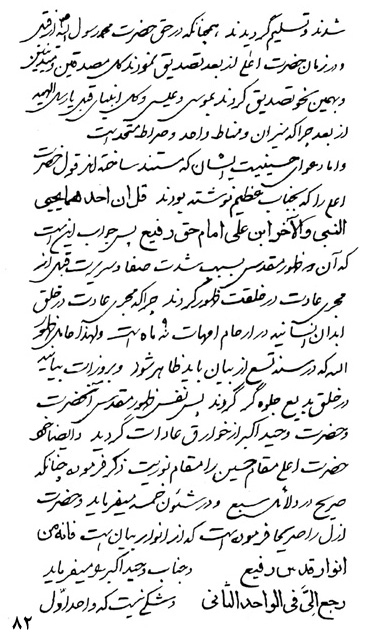 شدند و تسلیم گردیدند همچنانکه در حق حضرت محمد رسول الله از قبل
و در زمان حضرت اعلی از بعد تصدیق نمودند کل مصدقین و
و بهمین نحو تصدیق کردند بموسی و عیسی و کل انبیای قبل
از بعد چرا که میزان و مناط واحد و صراط متحد است
و اما دعوای حسینیت ایشان که مستند ساخته اند از قول حضرت
اعلی را که بجناب عظیم نوشته بودند قل ان احدهما یحیی
النبی و الآخر ابن علی امام حق رفیع پس جواب این است
که آن دو ظهور مقدس بسبب شدت صفا و سریرت قبل از
مجری عادت در خلقت ظهور کردند چرا که مجری عادت در خلق
ابدان انسانیه در ارحام امهات ۹ ماه است و لهذا ظهور
الله که در سنه تسع از بیان باید ظاهر شود و بروزات بیانیه
در خلق بدیع جلوه گر گردند پس نفس ظهور مقدس آنحضرت
و حضرت وحید اکبر از خوارق عادات گردید و ایضا خود
حضرت اعلی مقام حسین را مقام نوریت ذکر فرموده چنانکه
صریح در دلائل سبع و در شئون خمسه میفرماید و حضرت
ازل را صریحا فرموده است که از انوار بیان است فانه من
انوار قدس رفیع و جناب وحید اکبر میفرماید
رجع الیّ فی الواحد الثانی و شکی نیست که واحد اول
۸۲